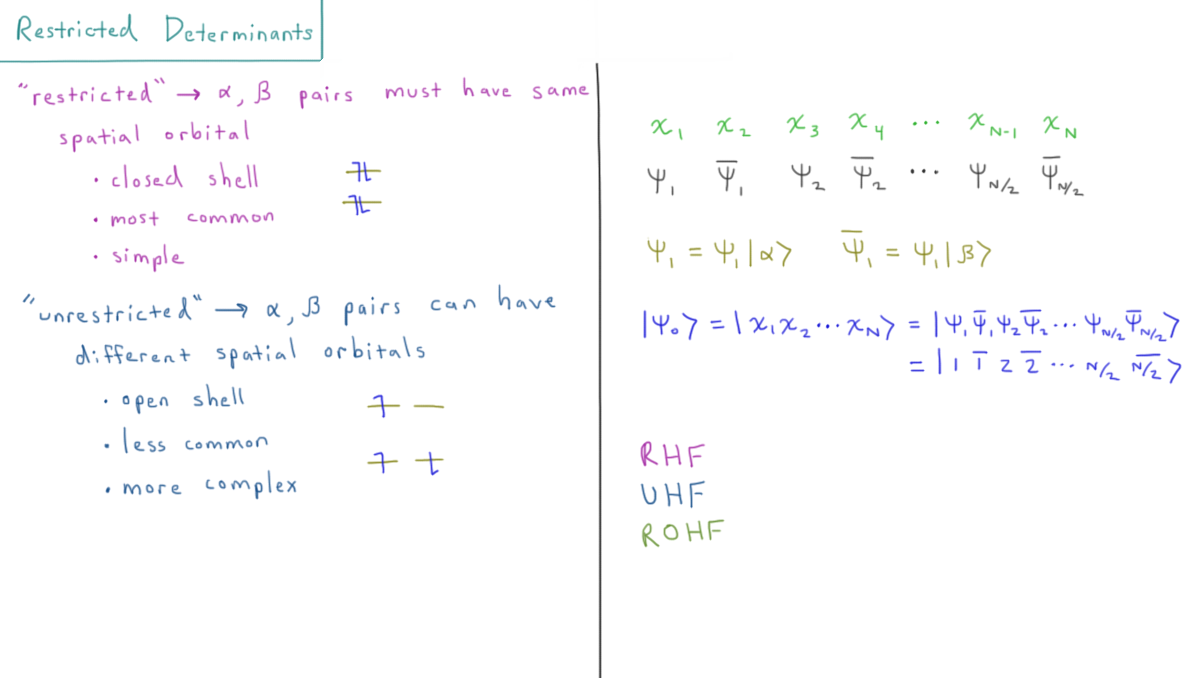 Restricted Determinants
"restricted" → α, β pairs must have same
spatial orbital
• closed shell
• most common
• simple
"unrestricted" → α, β pairs can have
different spatial orbitals
• open shell
• less common
• more complex
χ₁ χ₂ χ₃ χ₄ ⋯ χ_N-1 χ_N
Ψ₁ Ψ̅₁ Ψ₂ Ψ̅₂ ⋯ Ψ_N/2 Ψ̅_N/2
Ψ₁ = Ψ₁|α⟩ Ψ̅₁ = Ψ₁|β⟩
|Ψ₀⟩ = |χ₁χ₂⋯χ_N⟩ = |Ψ₁Ψ̅₁Ψ₂Ψ̅₂⋯Ψ_N/2Ψ̅_N/2⟩
= |1 1̅ 2 2̅ ⋯ N/2 N̅/̅2̅⟩
RHF
UHF
ROHF